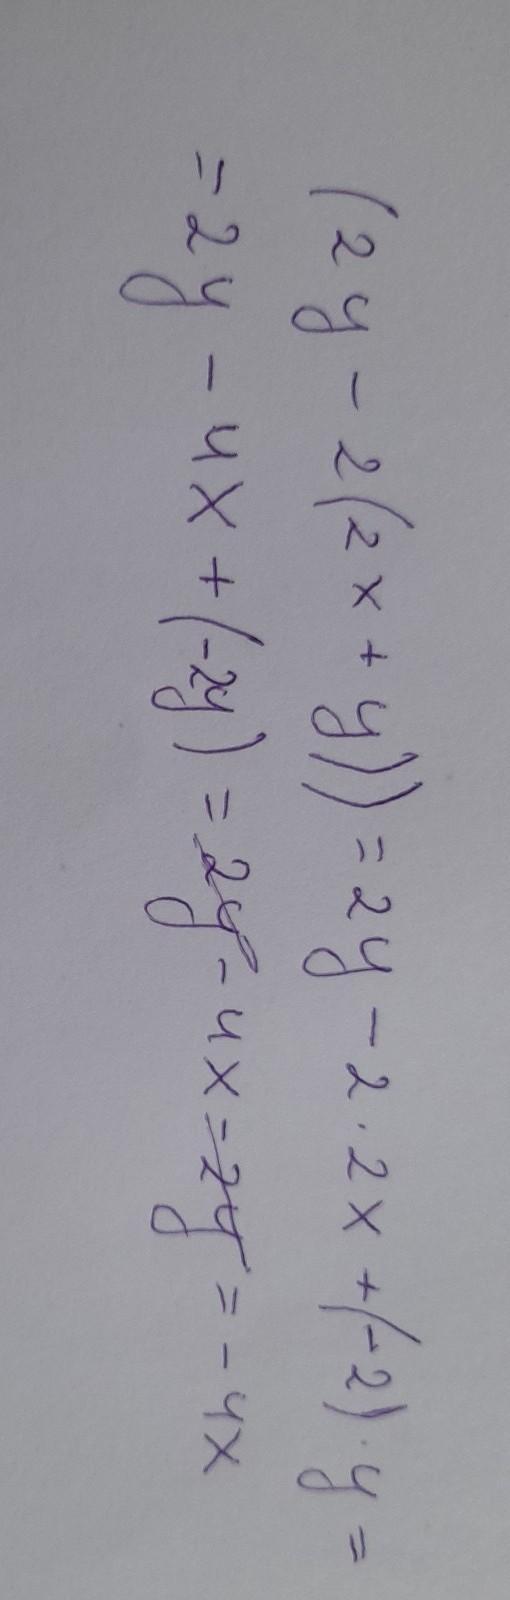 (2y - 2(2x + y)) = 2y - 2 · 2x + (-2) · y =
= 2y - 4x + (-2y) = 2y - 4x - 2y = - 4x